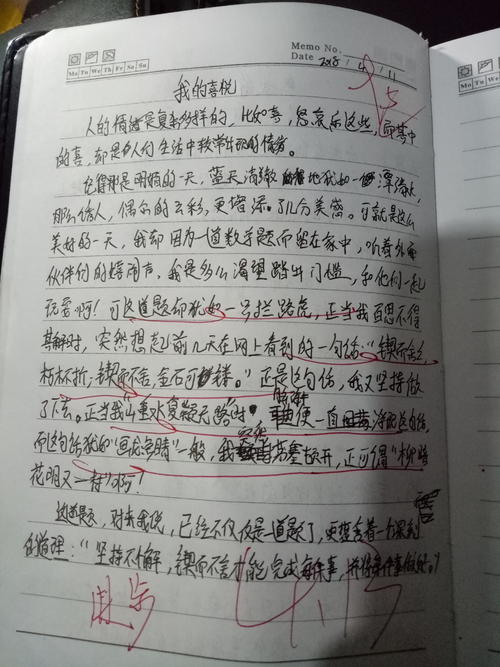 Memo No.
Mo Tu We Th Fr Sa Su
Date 2018 / 4 / 11
我的喜悦
人的情绪是复杂多样的，比如喜，怒哀乐这些，而其中
的喜，却是人们生活中较常出现的情绪。
记得那是明媚的一天，蓝天清澈地犹如一潭清水，
那么诱人，偶尔的云彩，更增添了几分美感。可就是这么
美好的一天，我却因为一道数学题而留在家中，听着外面
伙伴们的嬉闹声，我是多么渴望踏出门槛，和他们一起
玩耍啊！可这道题却犹如一号拦路虎，正当我百思不得
其解时，突然想起前几天在网上看到的一句话："锲而舍之，
朽木不折；锲而不舍，金石可镂。"正是这句话，我又坚持做
了下去。正当我"山重水复疑无路"时，便一直回荡这句话
而这句话犹如"画龙点睛"一般，我茅塞顿开，正可谓"柳暗
花明又一村"啊！
这道题，对我来说，已经不仅仅是一道题了，更想含着一个深刻
的道理："坚持不懈，锲而不舍才能完成每件事，并将每件事做好。"
Mo Tu